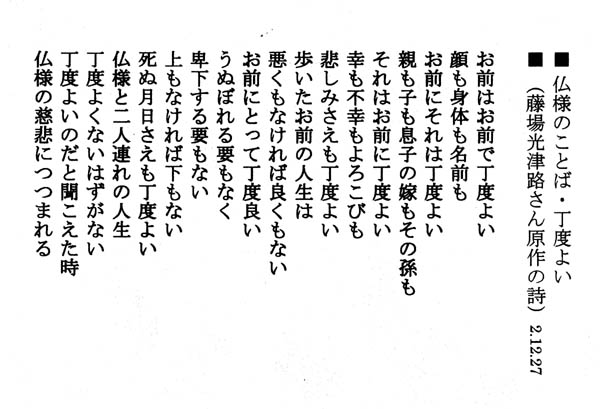 ■ 仏様のことば・丁度よい
■ (藤場光津路さん原作の詩) 2.12.27
お前はお前で丁度よい
顔も身体も名前も
お前にそれは丁度よい
親も子も息子の嫁もその孫も
それはお前に丁度よい
幸も不幸もよろこびも
悲しみさえも丁度よい
歩いたお前の人生は
悪くもなければ良くもない
お前にとって丁度良い
うぬぼれる要もなく
卑下する要もない
上もなければ下もない
死ぬ月日さえも丁度よい
仏様と二人連れの人生
丁度よくないはずがない
丁度よいのだと聞こえた時
仏様の慈悲につつまれる